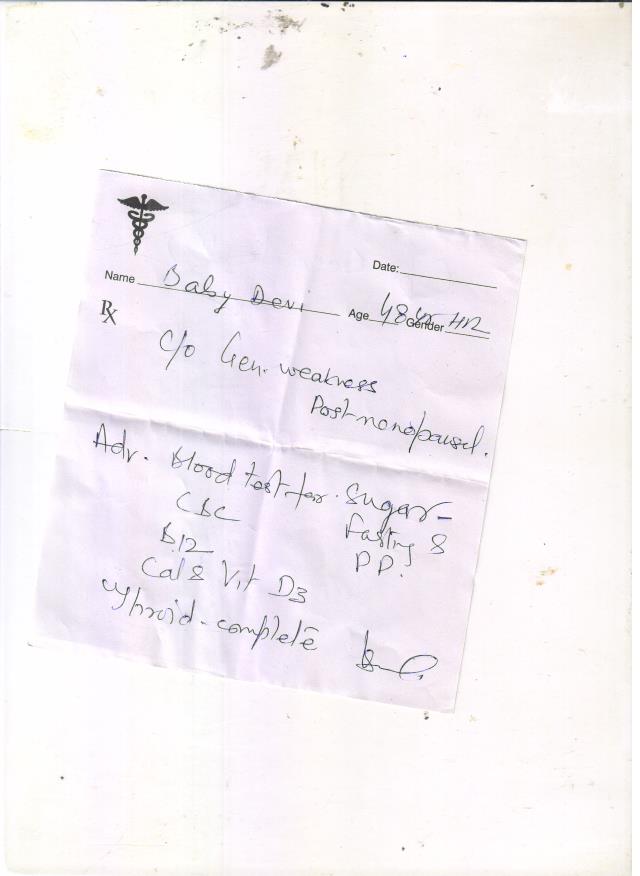 Date:
Name Baby Devi Age 48 yr Gender
Rx
c/o Gen. weakness
Postmenopausal.
Adv. Blood test for Sugar-
CBC Fasting &
B12 PP.
Cal & Vit D3
Thyroid-complete